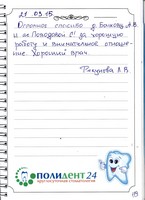 21 03 15
Огромное спасибо д. Бочкову А.В.
и ас. О! за хорошую
работу и внимательное отноше-
ние. Хороший врач
А.В.
ПОЛИДЕНТ 24
круглосуточная стоматология